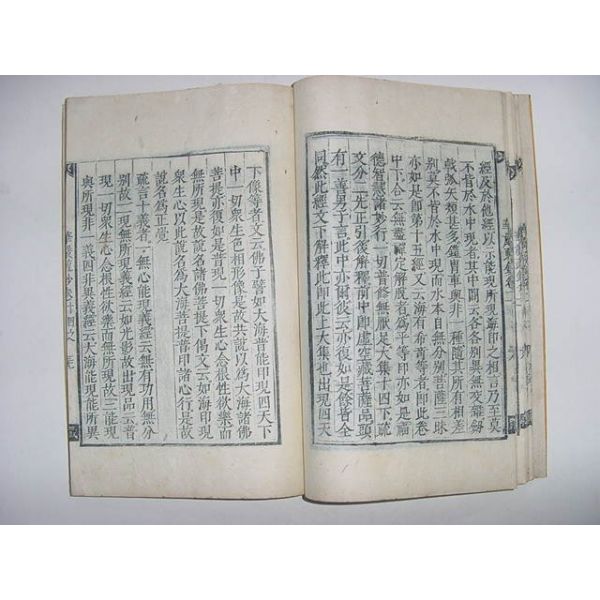 經及於他經以示能所現海印之相言乃至莫
不皆於水中現者其中闕云各各別異無
大樹甚多鎧冑車輿非一種隨其所有相差
別莫不皆於水中現水中自無分別菩薩三昧
亦如是即第十五經又云海有希奇等者即此卷
中下合云無盡禪定解脫者為平等印亦如是福
德智慧諸妙行一切普修無厭足大集十四下疏
文分二先正引後解釋前中即虛空藏菩薩品頭
有一善男子言此中亦闕彼云亦復如是餘皆全
同然此經文下解釋此即此上大集也十四云天
下像等者文云佛子譬如大海普能印現四天下
中一切衆生色相形像是故共說以為大海諸佛
菩提亦復如是普現一切衆生心念根性欲樂而
無所現是故說名諸佛菩提下偈文云如海印現
衆生身以此說名為大海菩提普印諸心行是故
說名為正覺
疏言十義者一無心能現義經云無有功用無分
別故二現無所現義經云如光影故出現品云普
現一切衆生心念根性欲樂而無所現故三能現
與所現非一義四非異義經云大海能現能所異